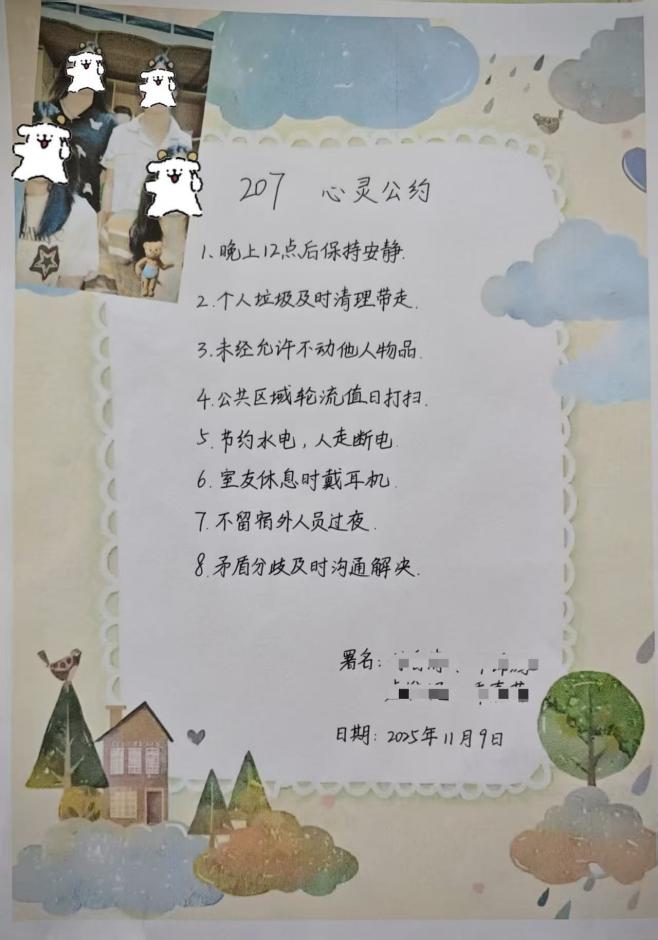 207 心灵公约
1、晚上12点后保持安静.
2.个人垃圾及时清理带走.
3.未经允许不动他人物品.
4.公共区域轮流值日打扫.
5.节约水电,人走断电.
6.室友休息时戴耳机.
7.不留宿外人员过夜.
8.矛盾分歧及时沟通解决.
署名:
日期: 2025年11月9日